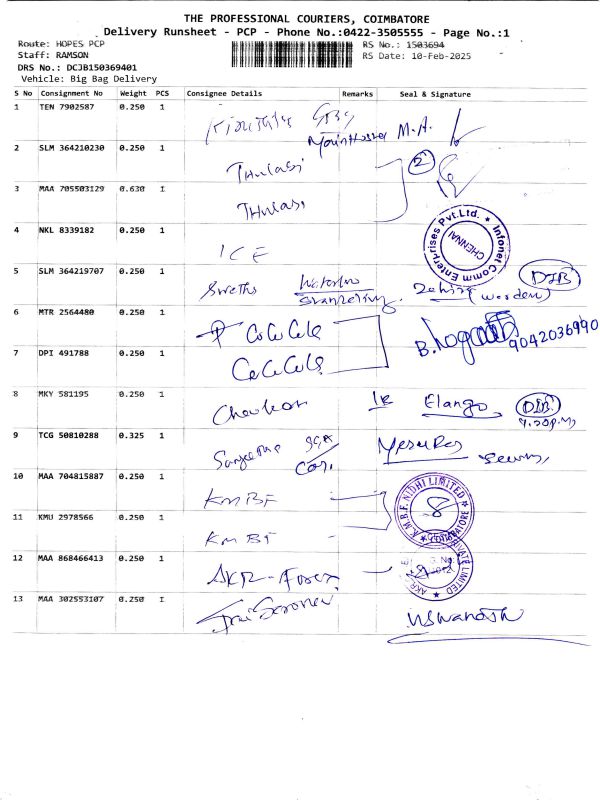 THE PROFESSIONAL COURIERS, COIMBATORE
Delivery Runsheet - PCP - Phone No.:0422-3505555 - Page No.:1
Route: HOPES PCP
RS No.: 1503694
Staff: RAMSON
RS Date: 10-Feb-2025
DRS No.: DCJB150369401
Vehicle: Big Bag Delivery
S No Consignment No Weight PCS Consignee Details Remarks Seal & Signature
1 TEN 7902587 0.250 1 M.A.
2 SLM 364210230 0.250 1 THulasi 2
3 MAA 705503129 0.630 1 THulasi
4 NKL 8339182 0.250 1 ICE Infonet Comm Enterprises Pvt.Ltd. CHENNAI
5 SLM 364219707 0.250 1 Swetha (Warden)
6 MTR 2564480 0.250 1 CoCuCola
7 DPI 491788 0.250 1 B. 9042036990
8 MKY 581195 0.250 1 Elango
9 TCG 50810288 0.325 1
10 MAA 704815887 0.250 1 KMBF K.M.B.F. NIDHI LIMITED COIMBATORE 8
11 KMU 2978566 0.250 1 KMBF
12 MAA 868466413 0.250 1 AKR-Forex AKR PRIVATE LIMITED
13 MAA 302553107 0.250 1